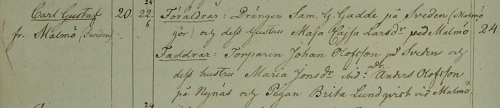 Carl Gustaf 20 22 Föräldrar: Drängen Sam. G. Gadde på Sveden (Malmö
fr. Malmö (Sveden) 8 går) och dess Hustru Maja Cajsa Larsdr. på Malmö 24
Faddrar: Torparen Johan Olofsson på Sveden och
dess hustru Maria Jonsdr. ibid: Dr. Anders Olofsson
på Nynäs och Pigan Brita Lundqvist vid Malmö.